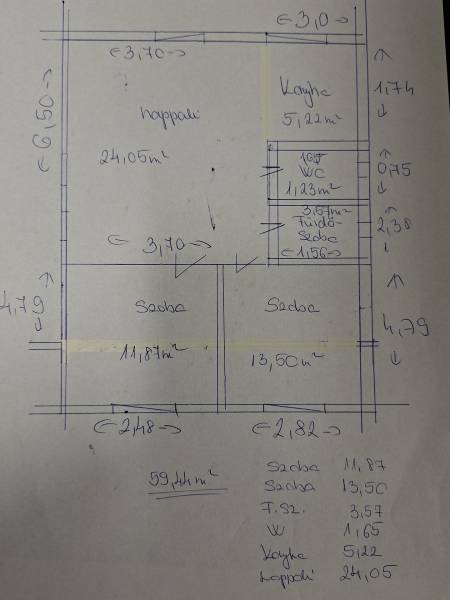 3,0
3,70
Konyha
1,74
6,50
nappali
5,22 m²
24,05 m²
1,65
WC
0,75
1,23 m²
3,57 m²
Fürdő-
szoba
2,38
3,70
1,56
4,79
Szoba
Szoba
4,79
11,87 m²
13,50 m²
2,48
2,82
59,44 m²
Szoba 11,87
Szoba 13,50
F.SZ. 3,57
W 1,65
Konyha 5,22
nappali 24,05